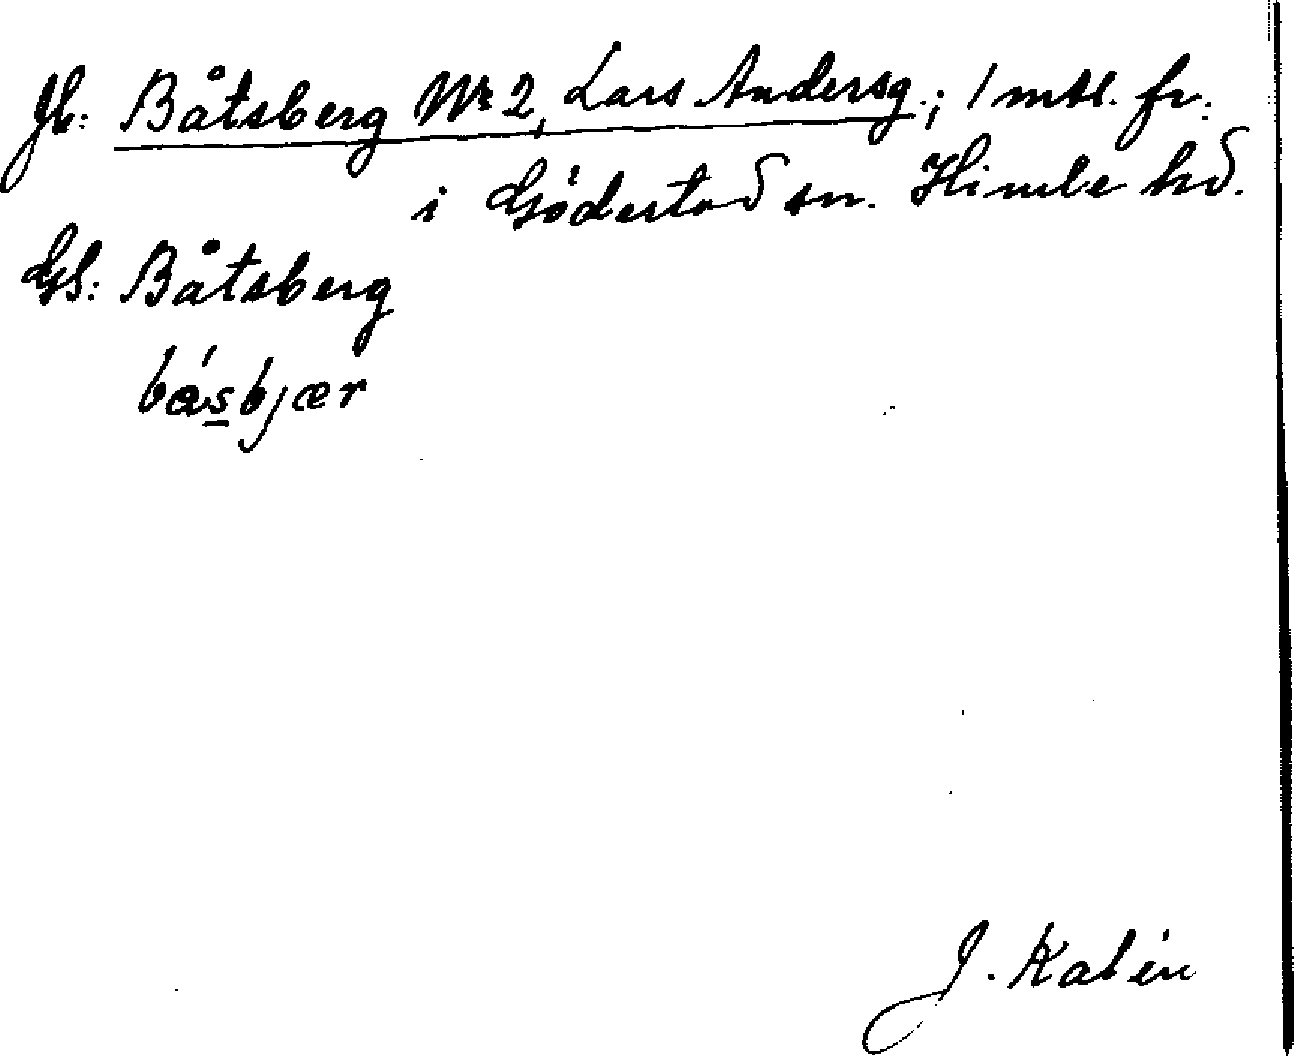 Jb: Båtsberg Nr 2, Lars Andersg.; 1 mtl. fr.
i Gödestad sn. Himle hd.
Gs: Båtsberg
básbjær
J. Kalén